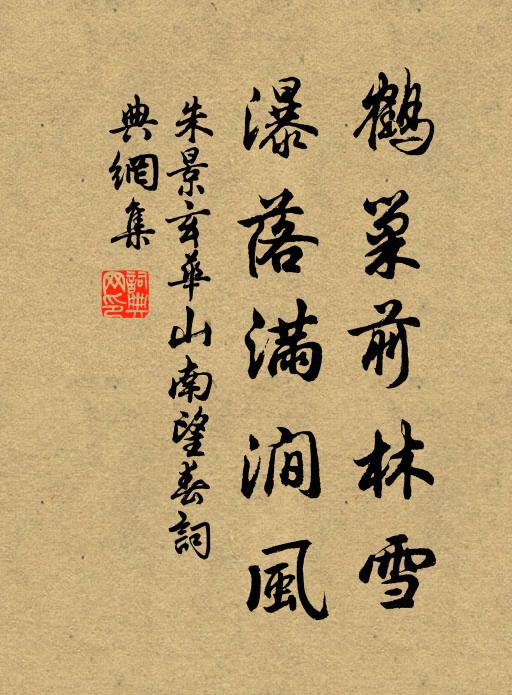 鶴巢前林雪
瀑落滿澗風
朱景玄華山南望春詞
典網集
詞典網印